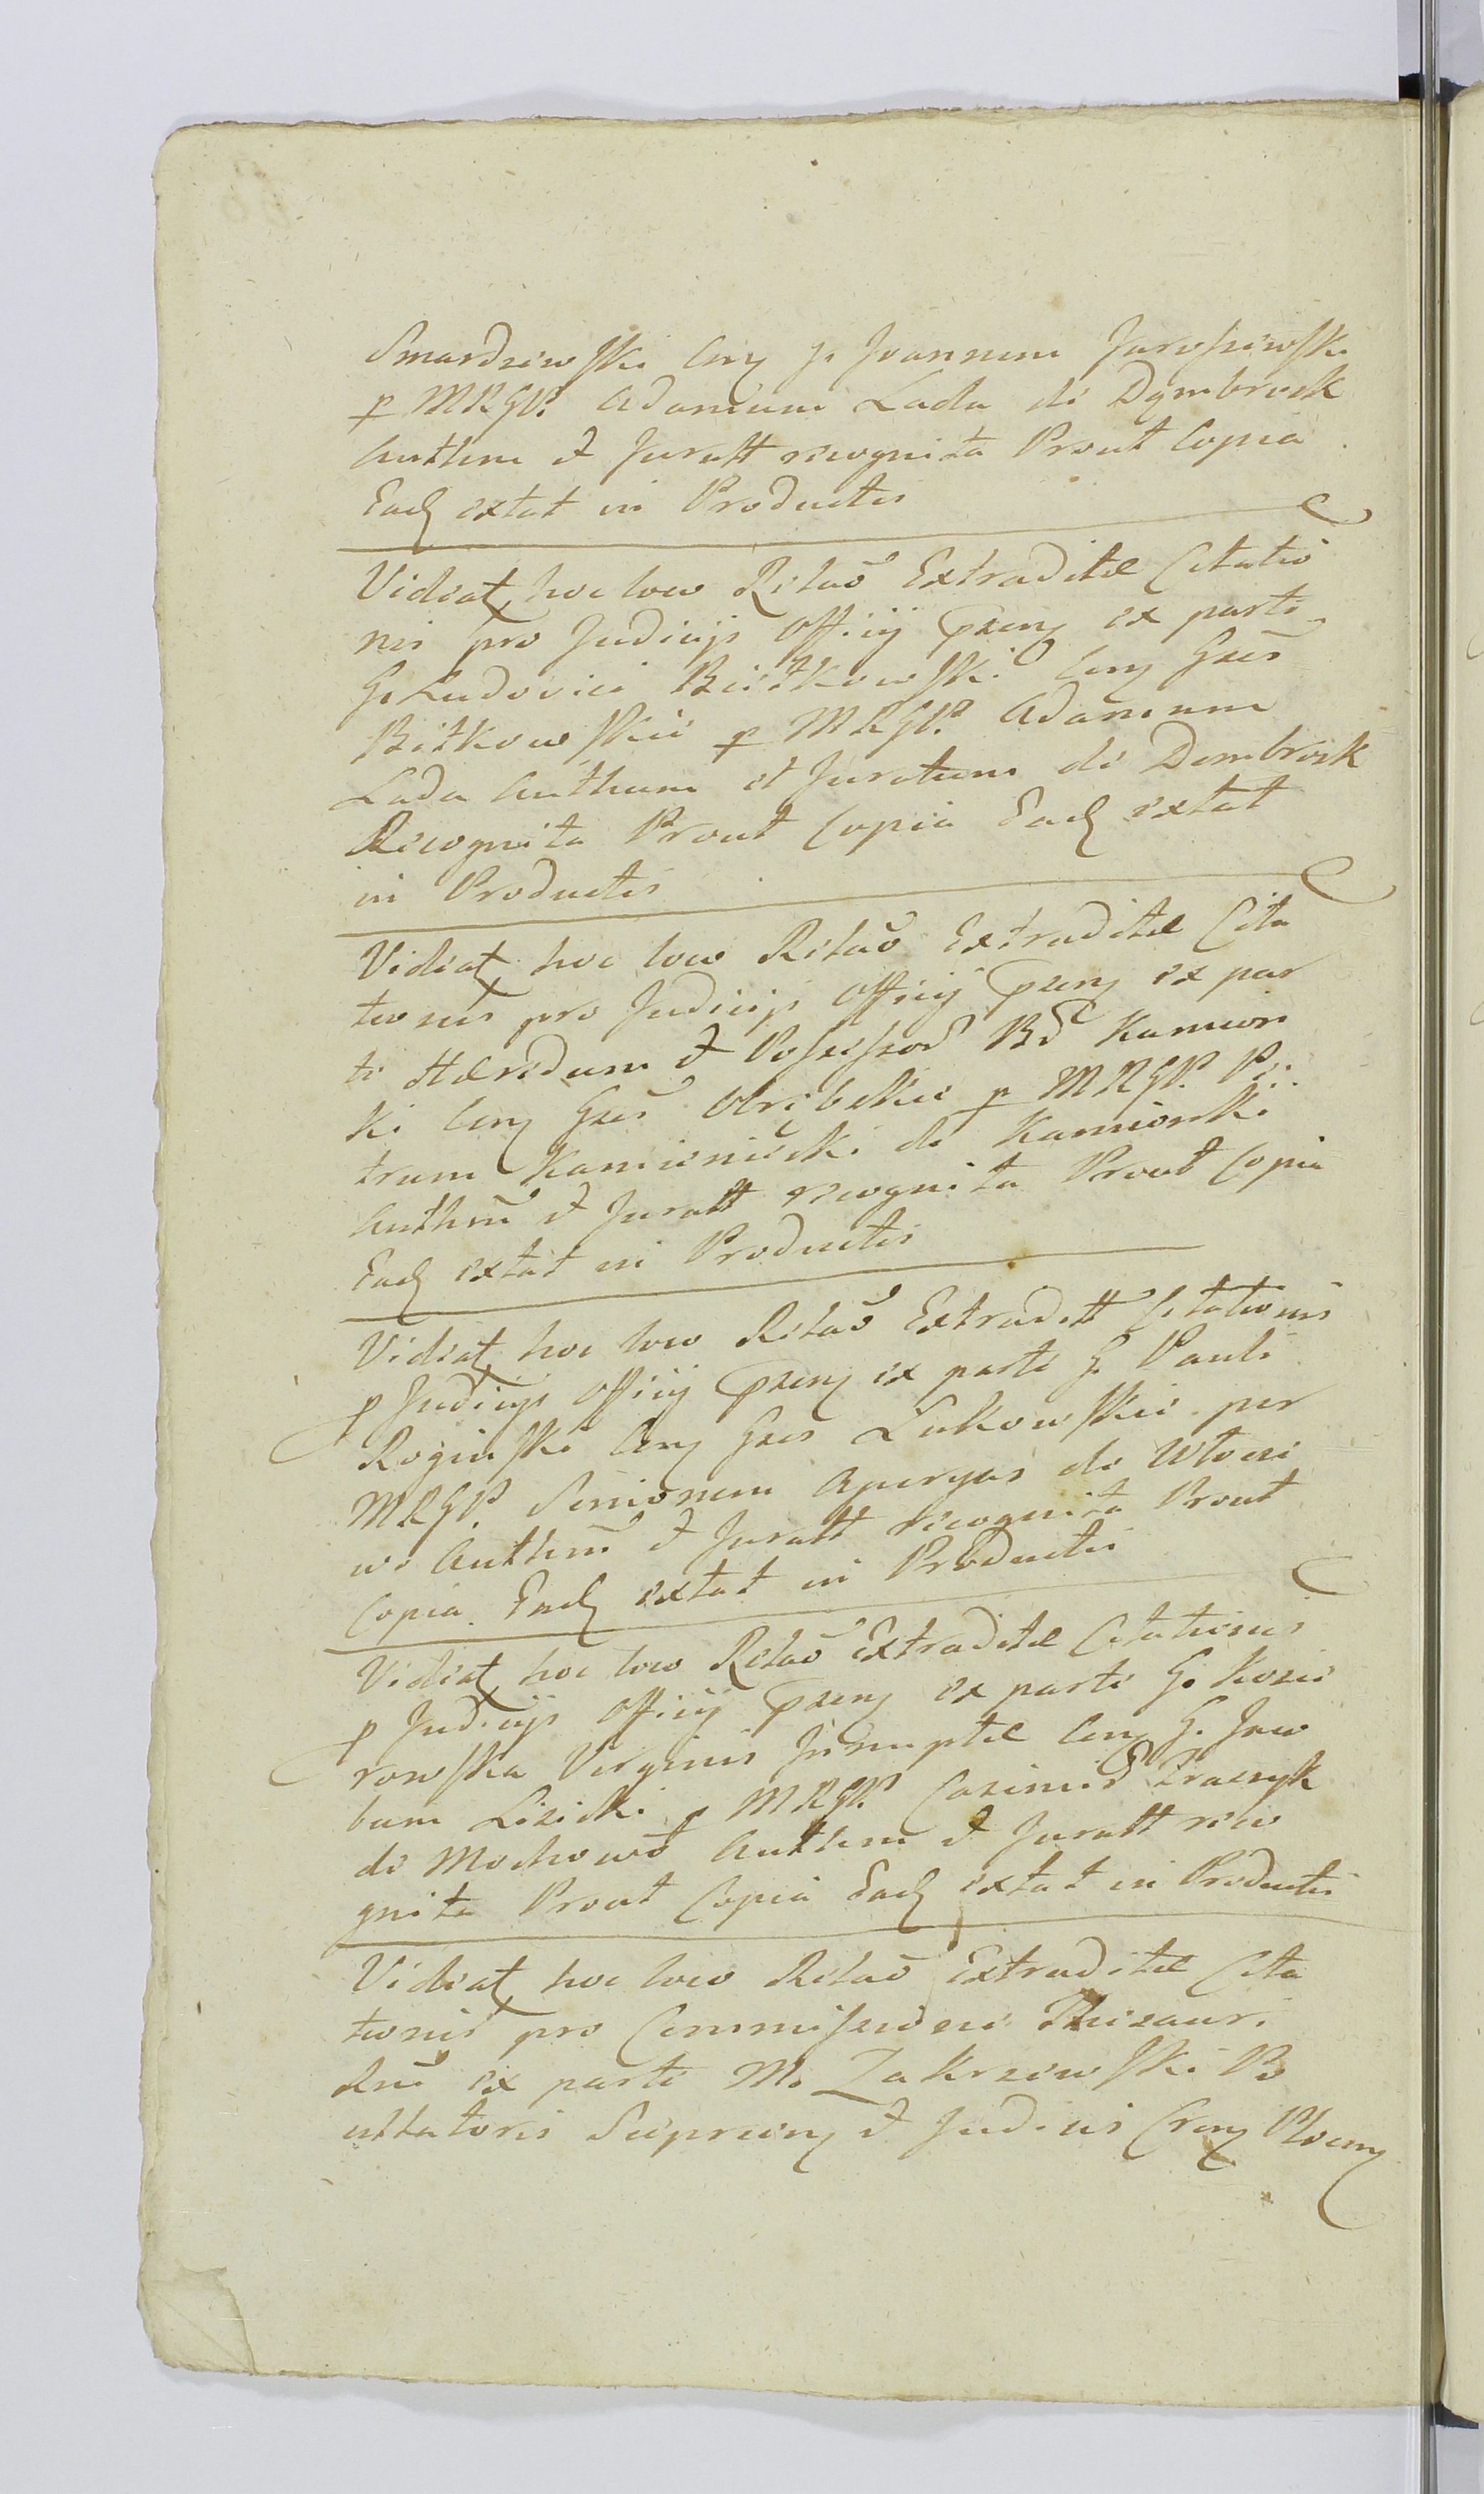 Smardzewski Cnq G. Joannem Jaroszewski
p MRGP. Adamum Lada de Dąmbrosk
Authm et Juratt recognita Prout Copia
Eadq extat in Productis
Videat, hoc loco Relaõ Extraditæ Citatio
nis pro Judicijs Officij Pzeng ex parte
G. Ludovici Bieżkowski Cnq Gzes
Biżkowskie p MRGP. Adamum
Lada Authum et Juratum de Dombrosk
Recognita Prout Copia Eadq extat
in Productis
Videat, hoc loco Relaõ Extraditæ Cita
tionis pro Judicijs Officij Pzeng ex par
te Hæredum et Possessor Bd Kamion
ki Cnq Gzes Obrębskie p MRGP. Pe
trum Kamieniecki de Kamionki
Authm et Juratt recognita Prout Copia
Eadq extat in Productis
Videat, hoc loco Relaõ Extraditt Citationis
p Judicijs Officij Pzeng ex parte G. Pauli
Roginski Cnq Gzes Żukowskie per
MRGP. Simonem de Włocie
wo Authm et Juratt recognita Prout
Copia Eadq extat in Productis
Videat, hoc loco Relaõ Extraditæ Citationis
p Judicijs Officij Pzeng ex parte G. Kozie
rowska Virginis Innuptæ Cnq G. Jaco
bum Lisicki p MRGP. Casimir Traczyk
de Mochowo Authm et Juratt reco
gnita Prout Copia Eadq extat in Productis
Videat, hoc loco Relaõ Extraditæ Cita
tionis pro Commissione Thesauri
Rni ex parte M. Zakrzewski Bo
ustatoris Scepreing et Judicis Creng Plocing